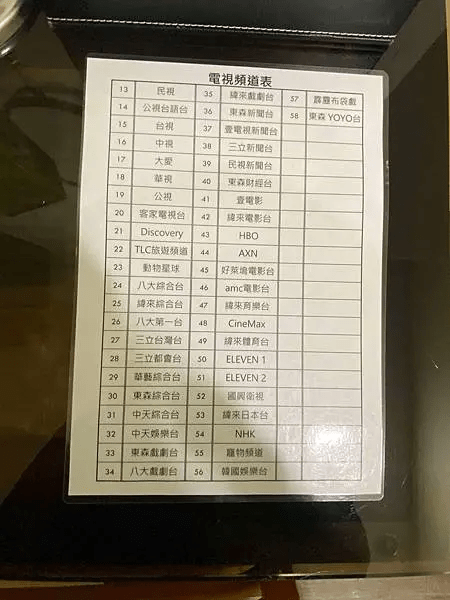 電視頻道表
13 民視 35 緯來戲劇台 57 霹靂布袋戲
14 公視台語台 36 東森新聞台 58 東森 YOYO台
15 台視 37 壹電視新聞台
16 中視 38 三立新聞台
17 大愛 39 民視新聞台
18 華視 40 東森財經台
19 公視 41 壹電影
20 客家電視台 42 緯來電影台
21 Discovery 43 HBO
22 TLC旅遊頻道 44 AXN
23 動物星球 45 好萊塢電影台
24 八大綜合台 46 amc電影台
25 緯綜合台 47 緯來育樂台
26 八大第一台 48 CineMax
27 三立台灣台 49 緯來體育台
28 三立都會台 50 ELEVEN 1
29 華藝綜合台 51 ELEVEN 2
30 東森綜合台 52 國興衛視
31 中天綜合台 53 緯來日本台
32 中天娛樂台 54 NHK
33 東森戲劇台 55 寵物頻道
34 八大戲劇台 56 韓國娛樂台